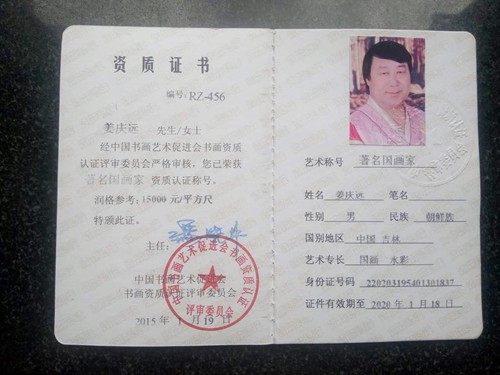 资质证书
编号: RZ-456
姜庆远 先生/女士
经中国书画艺术促进会书画资质
认证评审委员会严格审核，您已荣获
著名国画家 资质认证称号。
润格参考: 15000 元/平方尺
特颁此证。
主任:
中国书画艺术促进会
书画资质认证评审委员会
2015 年 1 月 19 日
中国书画艺术促进会书画资质认证
评审委员会
艺术称号 著名国画家
姓名 姜庆远 笔名
性别 男 民族 朝鲜族
国别地区 中国 吉林
艺术专长 国画 水彩
身份证号码 220203195401301837
证件有效期至 2020 年 1 月 18 日